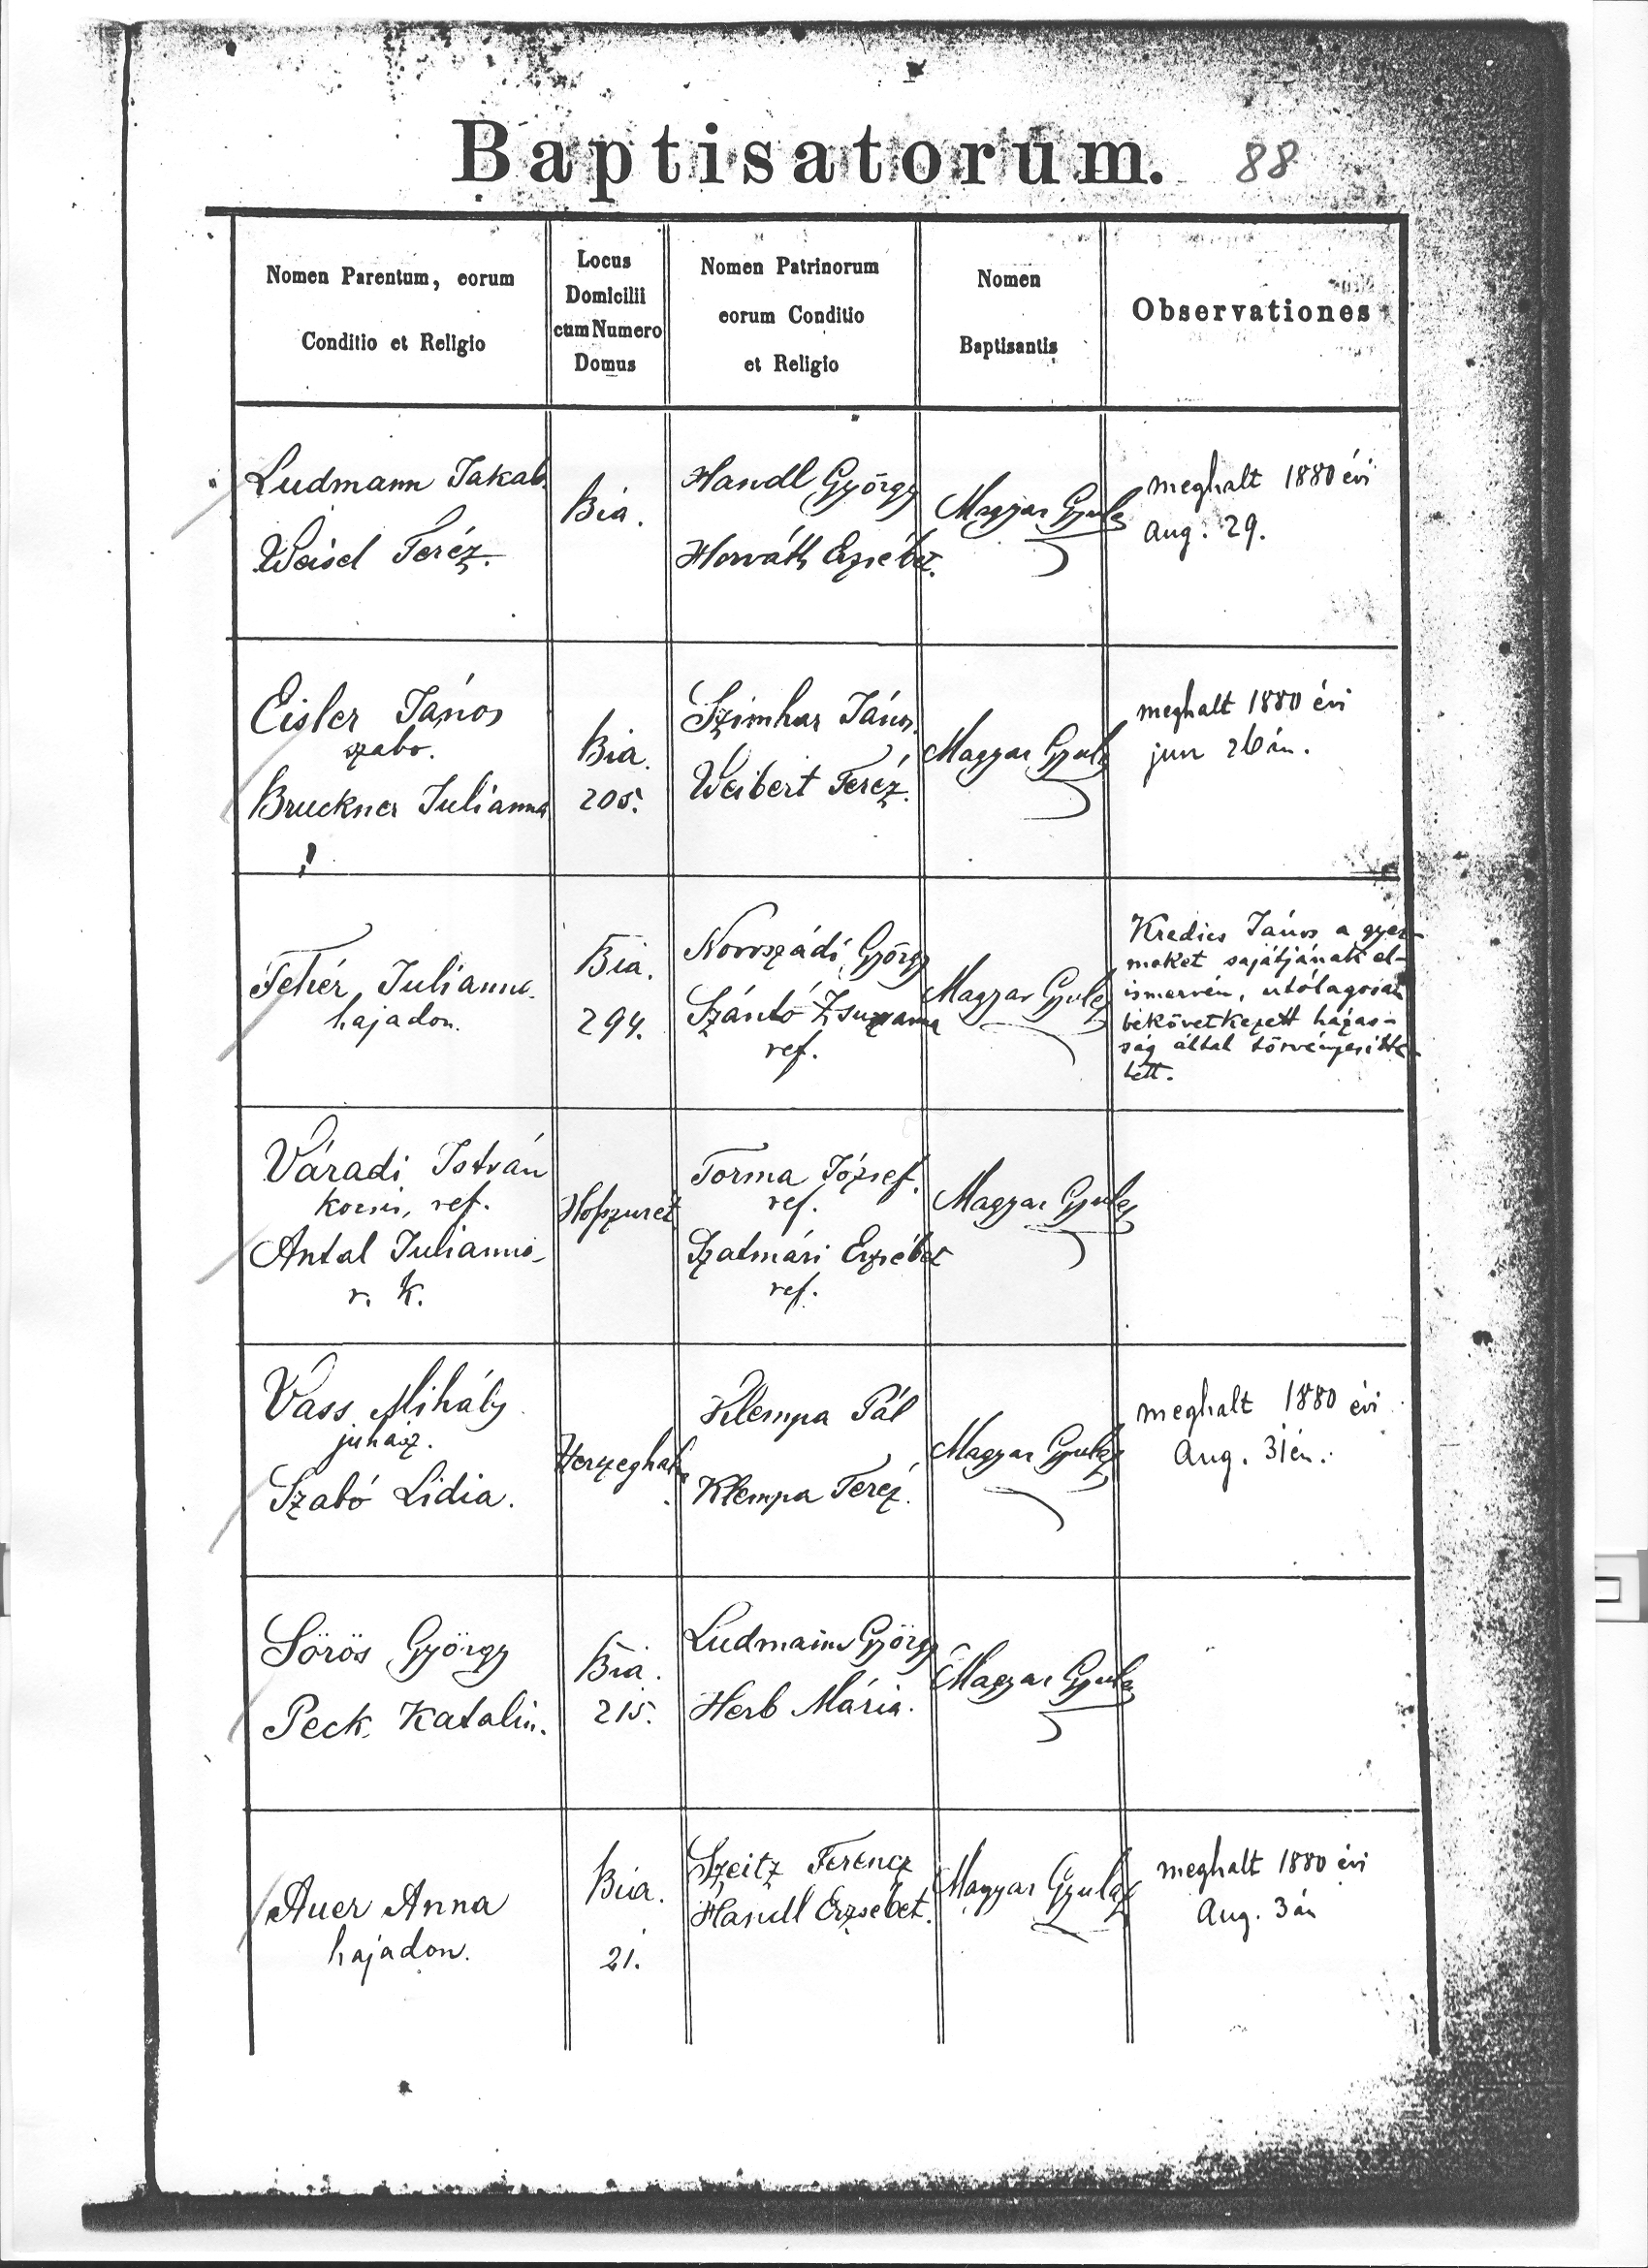 Baptisatorum. 88
Nomen Parentum, eorum
Conditio et Religio
Locus
Domicilii
cum Numero
Domus
Nomen Patrinorum
eorum Conditio
et Religio
Nomen
Baptisantis
Observationes
Ludmann Jakab.
Weisel Teréz.
Bia.
Handl György
Horváth Erzsébet.
Magyar Gyula
meghalt 1880 évi
Aug. 29.
Eisler János
szabo.
Bruckner Julianna
Bia.
205.
Szimhar János.
Weibert Teréz.
Magyar Gyula
meghalt 1880 évi
jun 26án.
Fehér Julianna.
hajadon.
Bia.
294.
Novoszádi György
Szántó Zsuzsanna
ref.
Magyar Gyula
Kredics János a gyer-
meket sajátjának el-
ismervén, utólagosan
bekövetkezett házas-
ság által törvényesitte-
tett.
Váradi István
kocsis, ref.
Antal Julianna
r. k.
Torma József.
ref.
Szatmári Erzsébet
ref.
Magyar Gyula
Vass Mihály
juhász.
Szabó Lidia.
Herczeghalm
Klempa Pál
Klempa Teréz.
Magyar Gyula
meghalt 1880 évi
Aug. 31én.
Sörös György
Peck Katalin.
Bia.
215.
Ludmann György
Herb Mária.
Magyar Gyula
Auer Anna
hajadon.
Bia.
21.
Szeitz Ferencz
Handl Erzsébet.
Magyar Gyula
meghalt 1880 évi
Aug. 3án